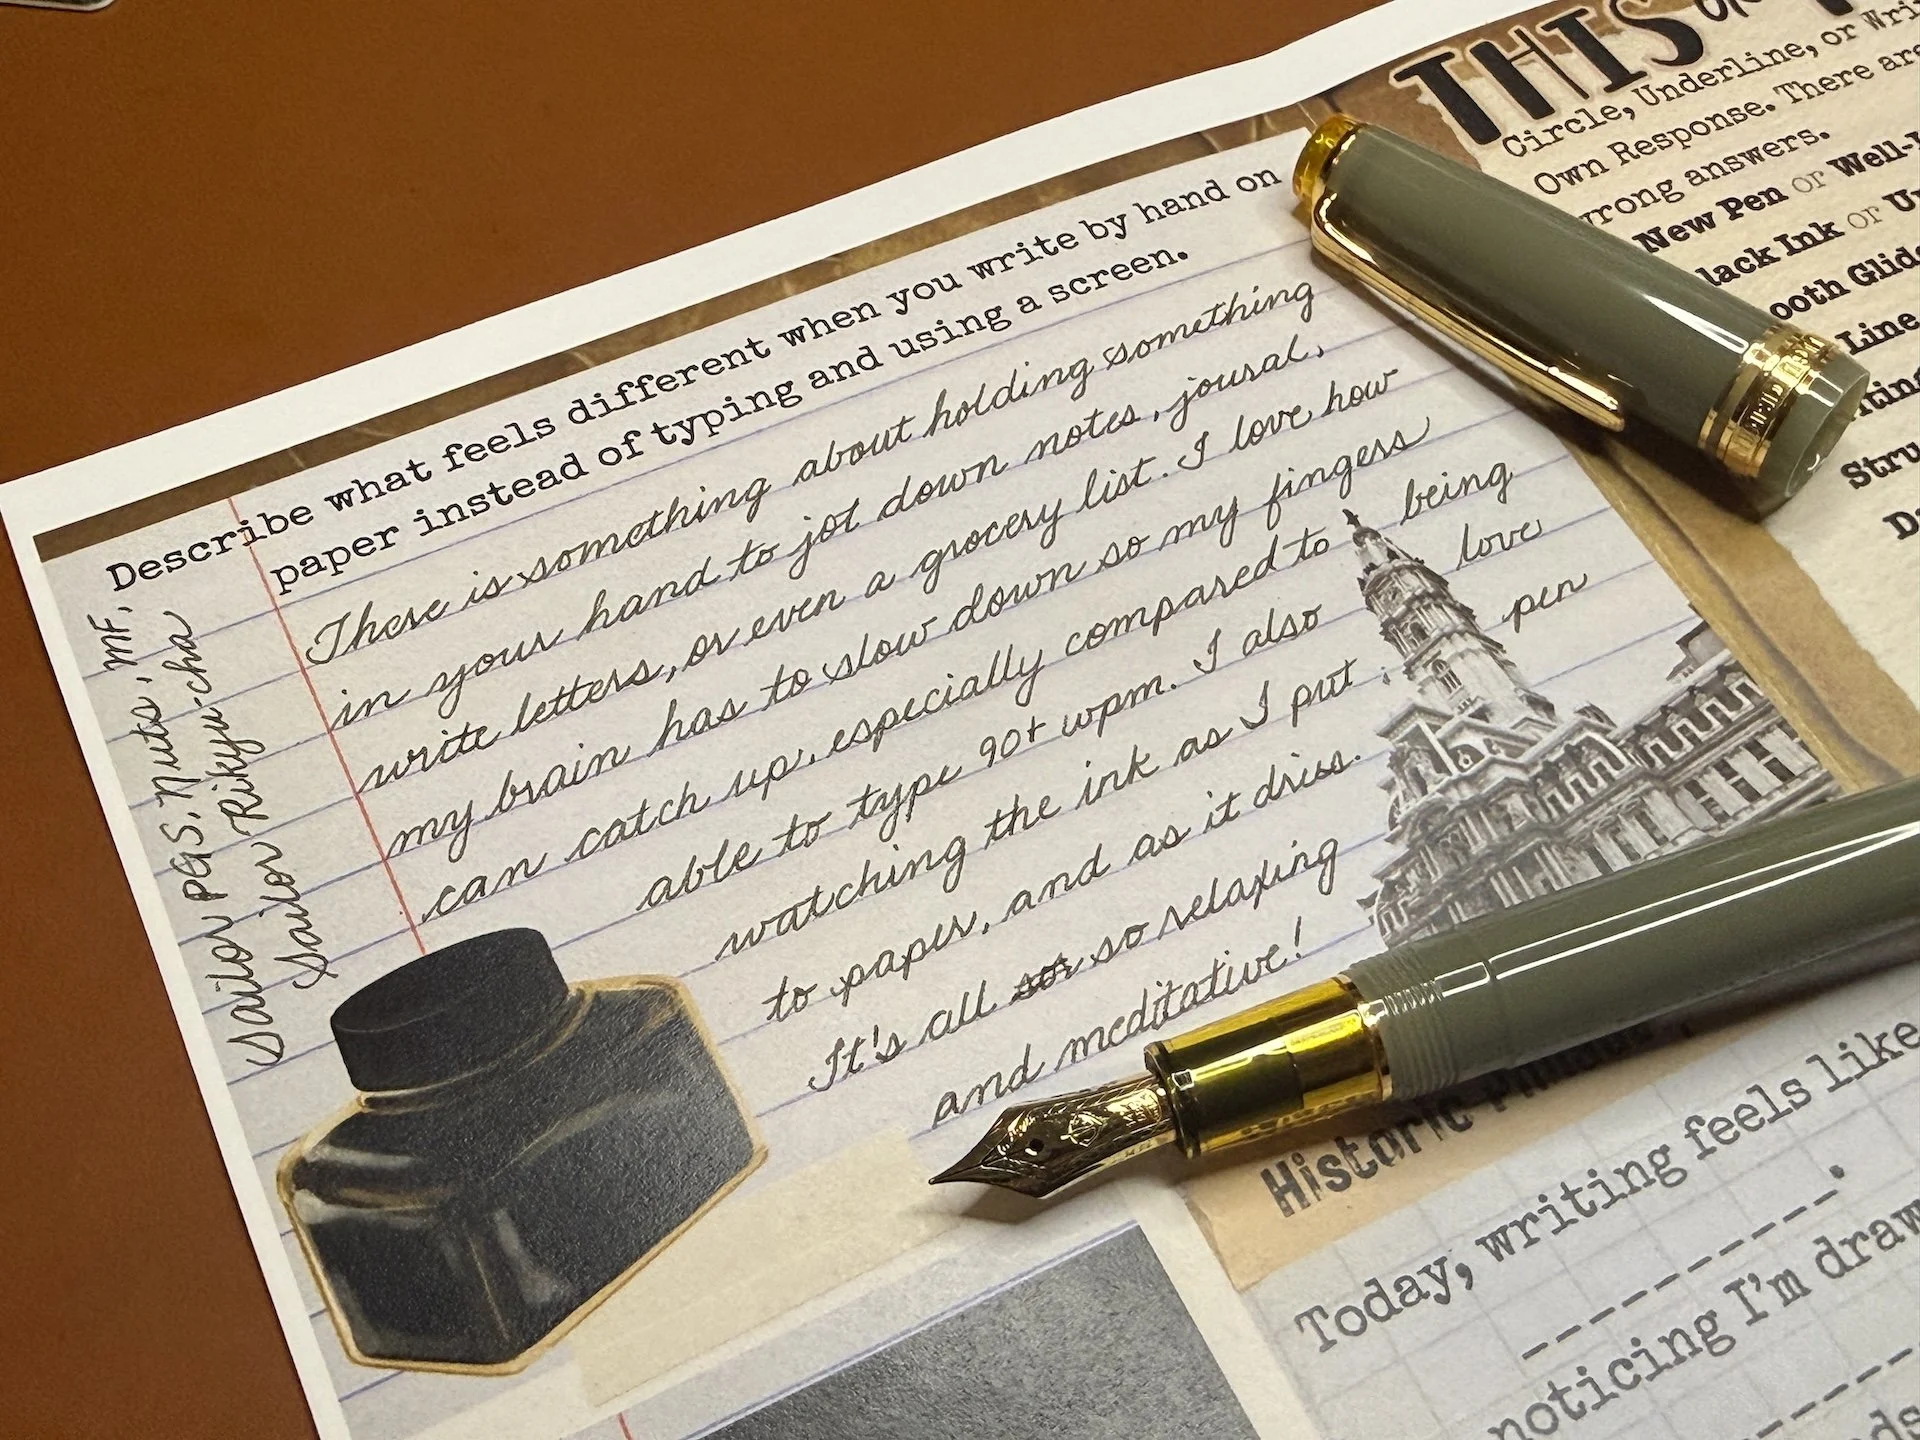 Describe what feels different when you write by hand on
paper instead of typing and using a screen.
There is something about holding something
in your hand to jot down notes, joural,
write letters, or even a grocery list. I love how
my brain has to slow down so my fingers
can catch up, especially compared to being
able to type 90+ wpm. I also love
watching the ink as I put pen
to paper, and as it dries.
It's all so so relaxing
and meditative!
Sailor PGS. Nuts, MF.
Sailor Rikyu-cha
THIS or
Circle, Underline, or Wri
Own Response. There are
wrong answers.
New Pen or Well-
lack Ink or U
ooth Glid
Line
ting
Stru
Historic
Today, writing feels like
noticing I'm draw